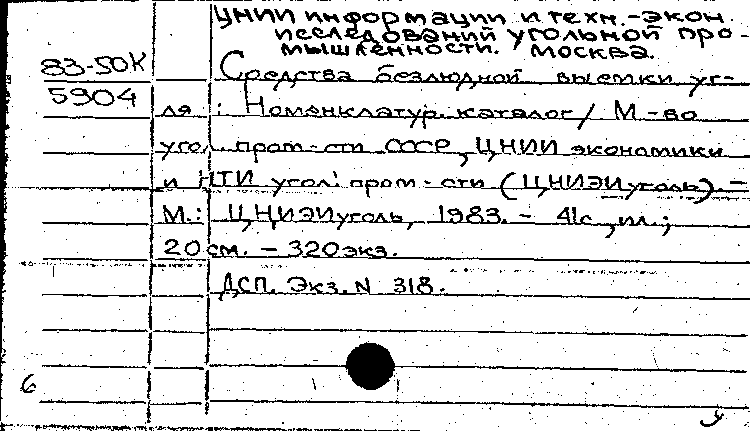 ЦНИИ информации и техн.-экон.
исследований угольной про-
мышленности. Москва.
83-50К
5904
Средства безлюдной выемки уг-
ля : Номенклатур. каталог / М-во
угол. пром-сти СССР, ЦНИИ экономики
и НТИ угол. пром-сти (ЦНИЭИуголь). –
М.: ЦНИЭИуголь, 1983. – 41с., ил.;
20 см. – 320 экз.
ДСП. Экз. N 318.
6
у